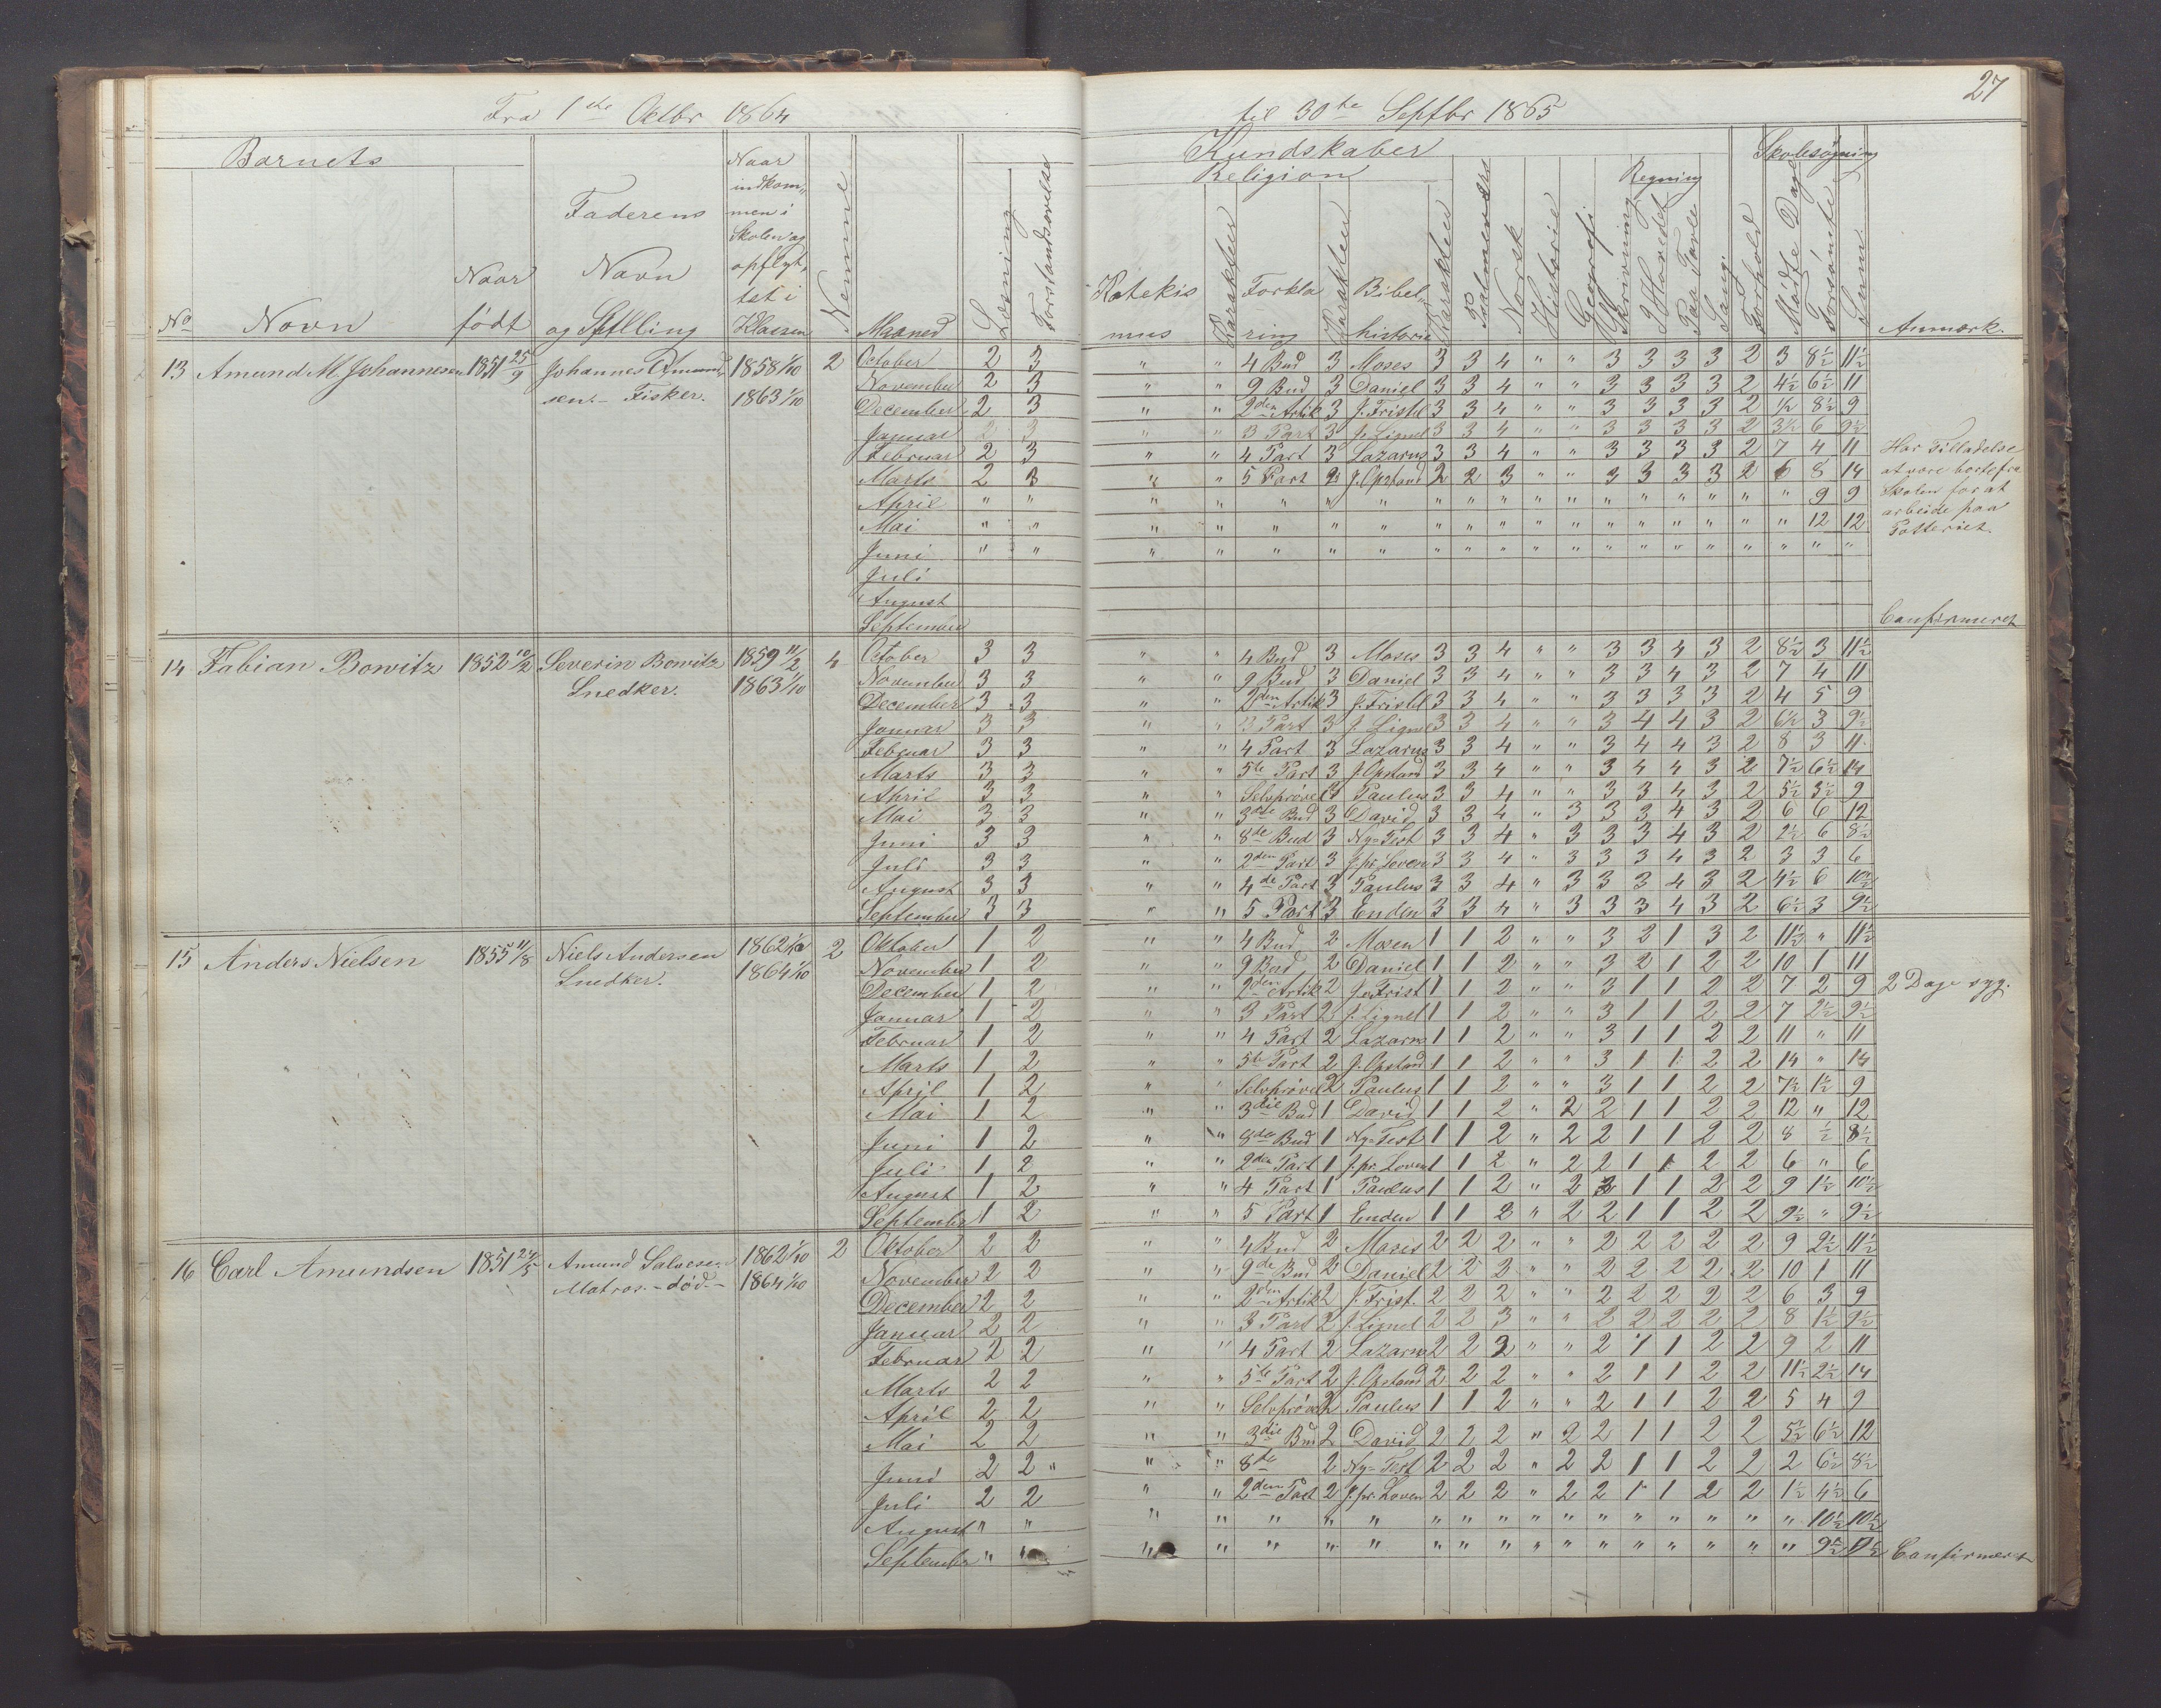 27
Fra 1ste Octbr 1864 til 30te Septbr 1865
Barnets
Kundskaber
Skolesøgning
Religion
Regning
No
Navn
Naar
født
Faderens
Navn
og Stilling
Naar
indkom„
men i
Skolen og
opflyt„
tet i
Klassen
Nemme
Maaned
Læsning
Forstandsøvelse
Katekis
mus
Karakter
Forkla
ring
Karakter
Bibel„
historie
Karakter
Psalmevers
Norsk
Historie
Geografi
Skrivning
I Hovedet
Paa Tavle
Sang
Forhold
Mødte Dage
Forsømte
Suma
Anmærk.
13 Amund M. Johannesen 1851 25/9 Johannes Amund„ 1858 1/10 2 October 2 3 " " 4 Bud 3 Moses 3 3 4 " " 3 3 3 3 2 3 8½ 11½
sen. – Fisker. 1863 1/10 November 2 3 " " 9 Bud 3 Daniel 3 3 4 " " 3 3 3 3 2 4½ 6½ 11
December 2 3 " " 2den Artik 3 J. Fristel 3 3 4 " " 3 3 3 3 2 ½ 8½ 9
Januar 2 3 " " 3 Part 3 J. Lignel 3 3 4 " " 3 3 3 3 2 3½ 6 9½
Februar 2 3 " " 4 Part 3 Lazarus 3 3 4 " " 3 3 3 3 2 7 4 11
Marts 2 3 " " 5 Part 2 J. Opstand 2 2 3 " " 3 3 3 3 2 6 8 14
April " " " " " " " " " " " " " " " " " " 9 9
Mai " " " " " " " " " " " " " " " " " " 12 12
Juni " " " " " " " " " " " " " " " " " " " "
Har Tilladelse
at være borte fra
Skolen for at
arbeide paa
Potteriet.
Juli
August
September
Confirmeret
14 Fabian Bowitz 1852 10/2 Severin Bowitz 1859 11/2 4 October 3 3 " " 4 Bud 3 Moses 3 3 4 " " 3 3 4 3 2 8½ 3 11½
Snedker. 1863 1/10 November 3 3 " " 9 Bud 3 Daniel 3 3 4 " " 3 3 4 3 2 7 4 11
December 3 3 " " 2den Artik 3 J. Fristel 3 3 4 " " 3 3 3 3 2 4 5 9
Januar 3 3 " " 3 Part 3 J. Lignel 3 3 4 " " 3 4 4 3 2 6½ 3 9½
Februar 3 3 " " 4 Part 3 Lazarus 3 3 4 " " 3 4 4 3 2 8 3 11
Marts 3 3 " " 5te Part 3 J. Opstand 3 3 4 " " 3 4 4 3 2 7½ 6½ 14
April 3 3 " " Selvprøvel 3 Paulus 3 3 4 " " 3 3 4 3 2 5½ 3½ 9
Mai 3 3 " " 3die Bud 3 David 3 3 4 " 3 3 3 4 3 2 6 6 12
Juni 3 3 " " 8de Bud 3 Ny=Test 3 3 4 " 3 3 3 4 3 2 2½ 6 8½
Juli 3 3 " " 2den Part 3 J. pr. Loven 3 3 4 " 3 3 3 4 3 2 3 3 6
August 3 3 " " 4de Part 3 Paulus 3 3 4 " 3 3 3 4 3 2 4½ 6 10½
September 3 3 " " 5 Part 3 Enden 3 3 4 " 3 3 3 4 3 2 6½ 3 9½
15 Anders Nielsen 1855 11/8 Niels Andersen 1862 1/10 2 Oktober 1 2 " " 4 Bud 2 Mosen 1 1 2 " " 3 2 1 3 2 11½ " 11½
Snedker. 1864 1/10 November 1 2 " " 9 Bud 2 Daniel 1 1 2 " " 3 2 1 2 2 10 1 11
December 1 2 " " 2den Artik 2 J. Frist 1 1 2 " " 3 1 1 2 2 7 2 9 2 Dage syg.
Januar 1 2 " " 3 Part 2 J. Lignel 1 1 2 " " 3 1 1 2 2 7 2½ 9½
Februar 1 2 " " 4 Part 2 Lazarus 1 1 2 " " 3 1 1 2 2 11 " 11
Marts 1 2 " " 5te Part 2 J. Opstand 1 1 2 " " 3 1 1 2 2 14 " 14
April 1 2 " " Selvprøvel 2 Paulus 1 1 2 " " 3 1 1 2 2 7½ 1½ 9
Mai 1 2 " " 3die Bud 1 David 1 1 2 " 2 2 1 1 2 2 12 " 12
Juni 1 2 " " 8de Bud 1 Ny=Test 1 1 2 " 2 2 1 1 2 2 8 ½ 8½
Juli 1 2 " " 2den Part 1 J. pr. Loven 1 1 2 " 2 2 1 1 2 2 6 " 6
August 1 2 " " 4 Part 1 Paulus 1 1 2 " 2 2 1 1 2 2 9 1½ 10½
September 1 2 " " 5 Part 1 Enden 1 1 2 " 2 2 1 1 2 2 9½ " 9½
16 Carl Amundsen 1851 24/5 Amund Salvesen 1862 1/10 2 Oktober 2 2 " " 4 Bud 2 Moses 2 2 2 " " 2 2 2 2 2 9 2½ 11½
Matros. – død. – 1864 1/10 November 2 2 " " 9de Bud 2 Daniel 2 2 2 " " 2 2 2 2 2 10 1 11
December 2 2 " " 2den Artik 2 J. Frist. 2 2 2 " " 2 2 2 2 2 6 3 9
Januar 2 2 " " 3 Part 2 J. Lignel 2 2 3 " " 2 2 2 2 2 8 1½ 9½
Februar 2 2 " " 4 Part 2 Lazarus 2 2 2 " " 2 1 1 2 2 9 2 11
Marts 2 2 " " 5te Part 2 J. Opstand 2 2 2 " " 2 1 1 2 2 11½ 2½ 14
April 2 2 " " Selvprøvel 2 Paulus 1 1 2 " " 2 1 1 2 2 5 4 9
Mai 2 2 " " 3die Bud 2 David 2 2 2 " 2 2 1 1 2 2 5½ 6½ 12
Juni 2 2 " " " 8de 2 Ny=Test 2 2 2 " 2 2 1 1 2 2 2 6½ 8½
Juli 2 2 " " 2den Part 2 J. pr. Loven 2 2 2 " 2 2 1 1 2 2 1½ 4½ 6
August " " " " " " " " " " " " " " " " " " 10½ 10½
September " " " " " " " " " " " " " " " " " " 9½ 9½ Confirmeret